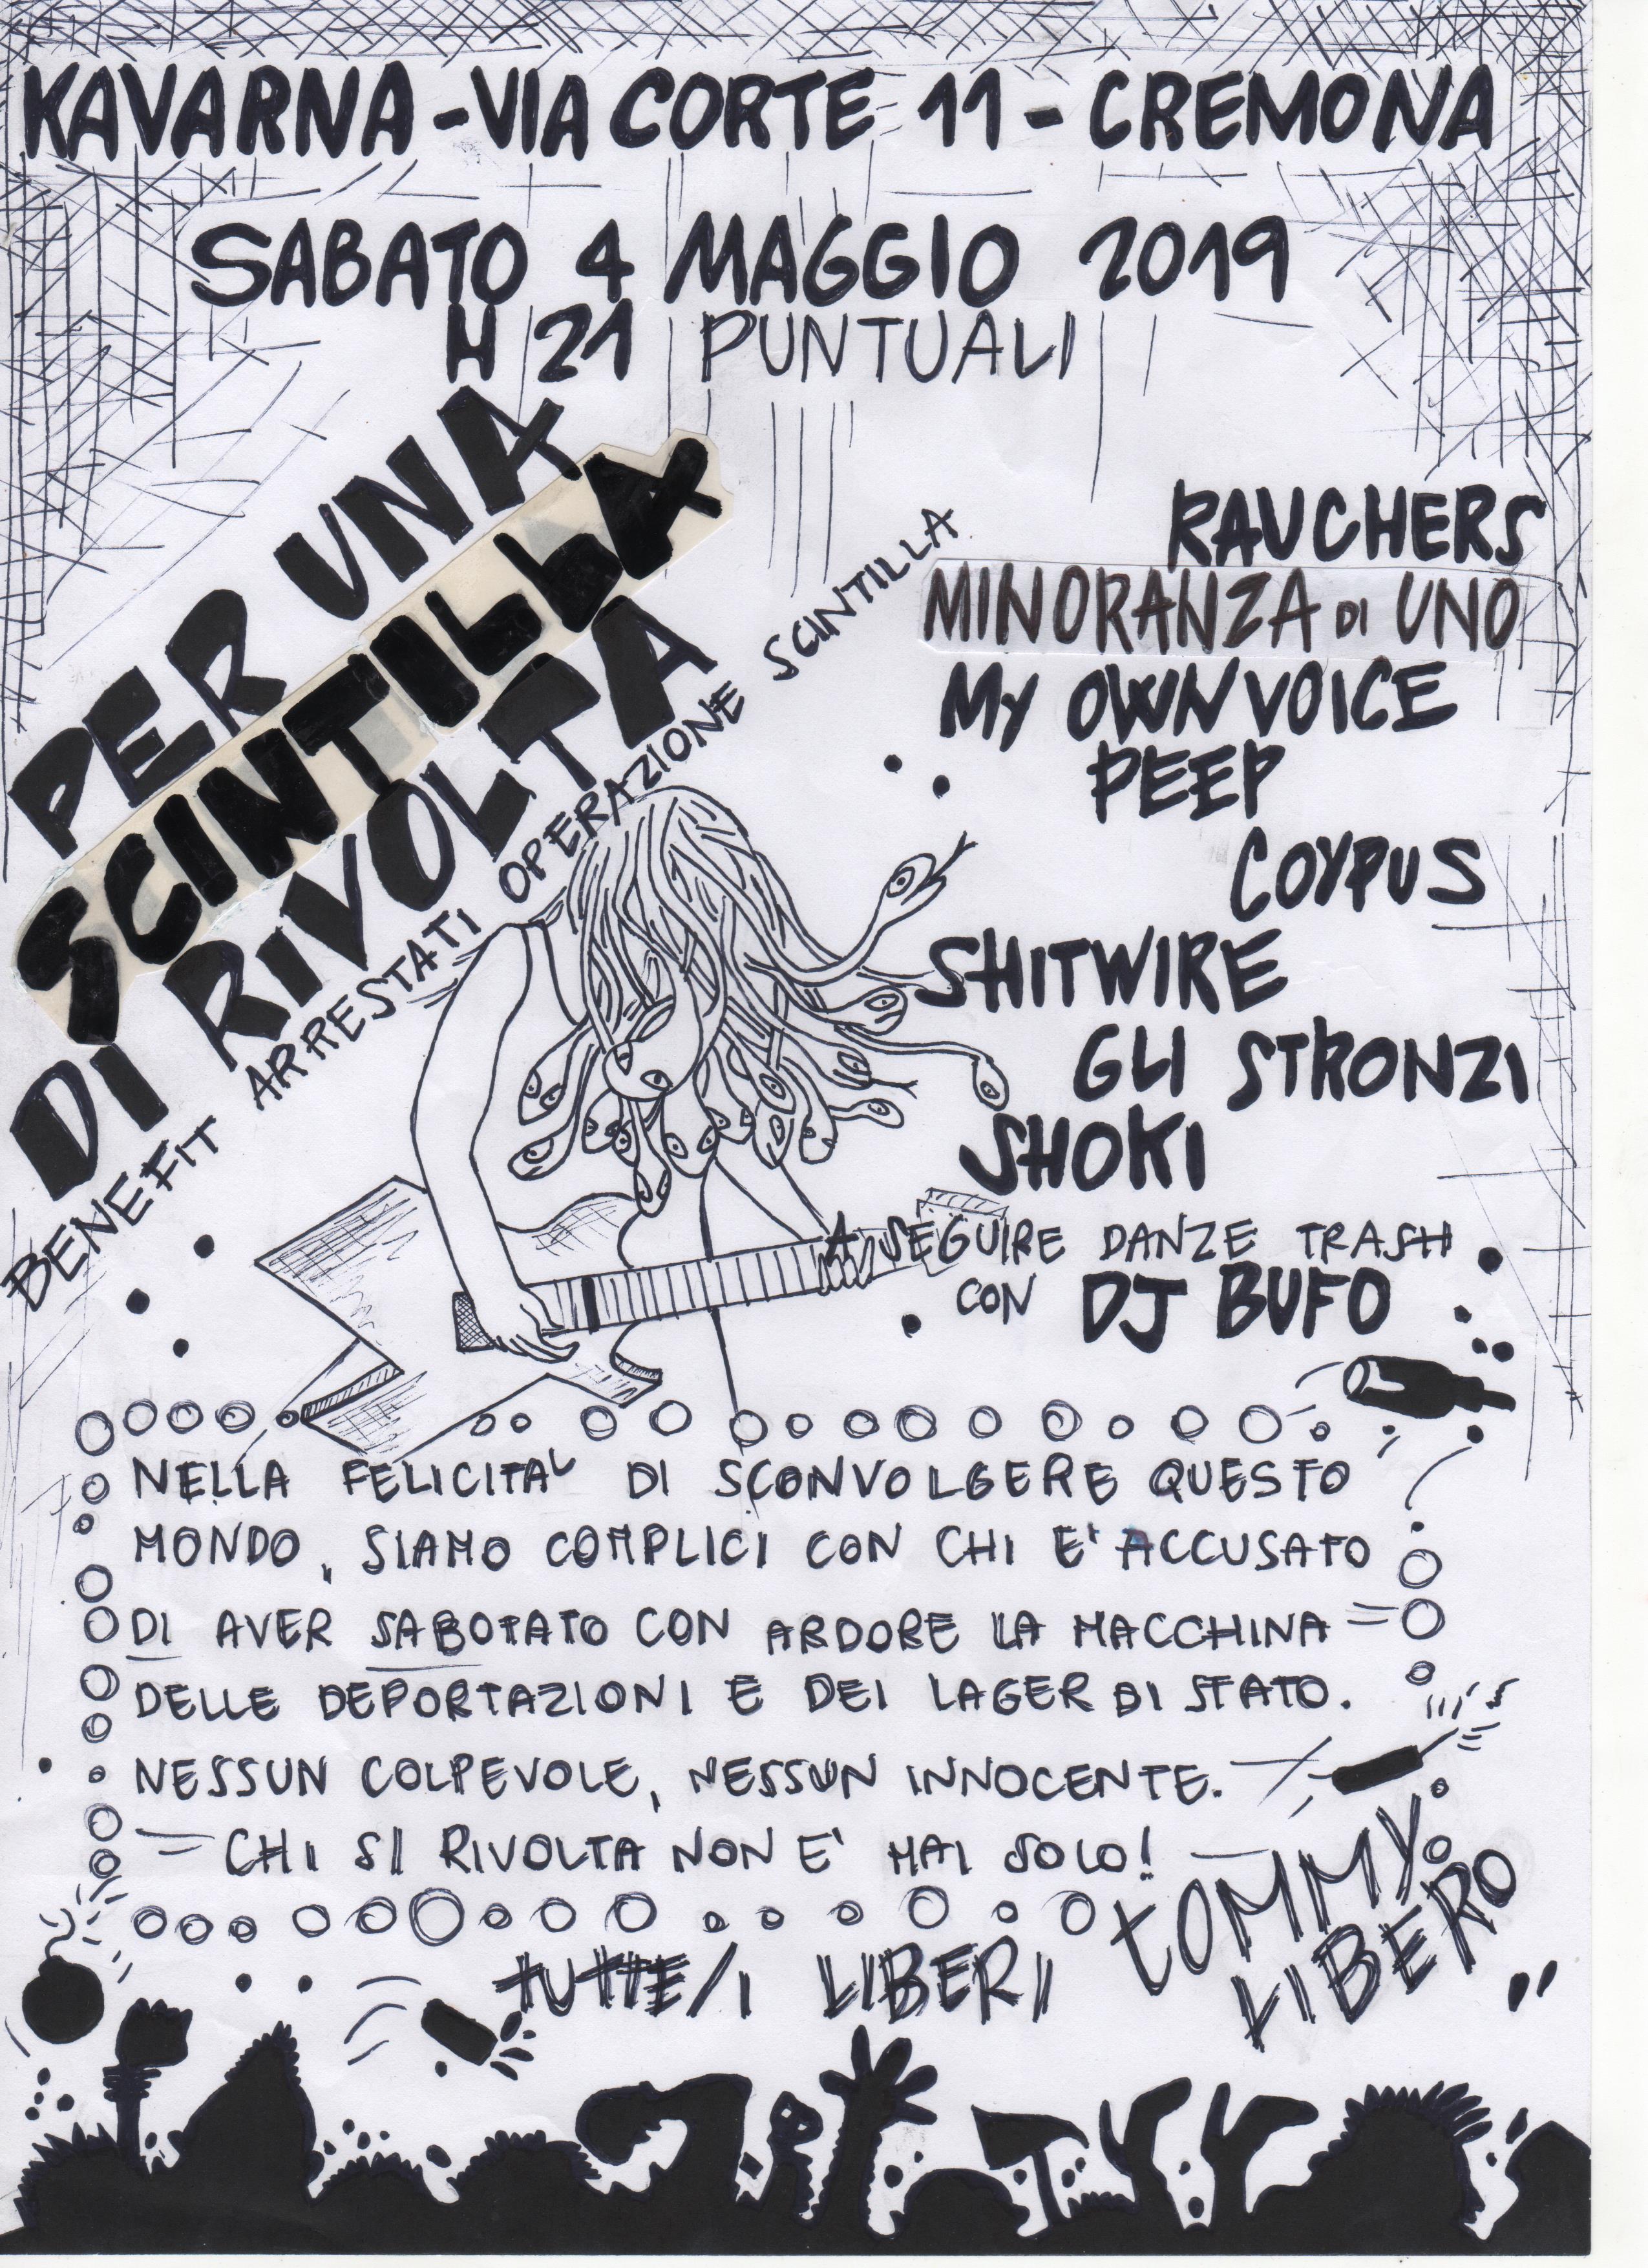 KAVARNA - VIA CORTE 11 - CREMONA
SABATO 4 MAGGIO 2019
H 21 PUNTUALI
PER UNA
SCINTILLA
DI RIVOLTA
BENEFIT ARRESTATI OPERAZIONE SCINTILLA
RAUCHERS
MINORANZA DI UNO
MY OWN VOICE
PEEP
COYPUS
SHITWIRE
GLI STRONZI
SHOKI
A SEGUIRE DANZE TRASH
CON DJ BUFO
NELLA FELICITA' DI SCONVOLGERE QUESTO
MONDO, SIAMO COMPLICI CON CHI E' ACCUSATO
DI AVER SABOTATO CON ARDORE LA MACCHINA
DELLE DEPORTAZIONI E DEI LAGER DI STATO.
NESSUN COLPEVOLE, NESSUN INNOCENTE.
CHI SI RIVOLTA NON E' MAI SOLO!
TUTTE/I LIBERI
TOMMY
LIBERO